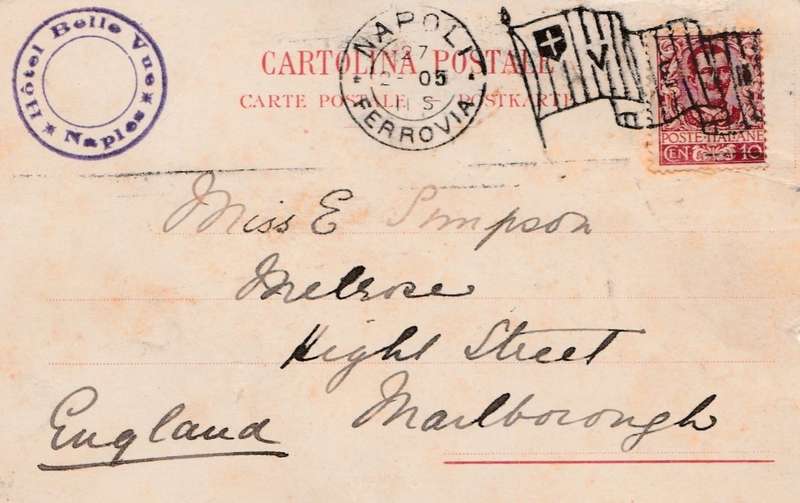 Hôtel Belle Vue
Naples
NAPOLI
27
2 05
S
FERROVIA
V
CARTOLINA POSTALE
CARTE POSTALE - POSTKARTE
POSTE ITALIANE
CEN 10
Miss E Simpson
Melrose
Hight Street
Marlborough
England